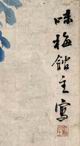 味梅館主寫